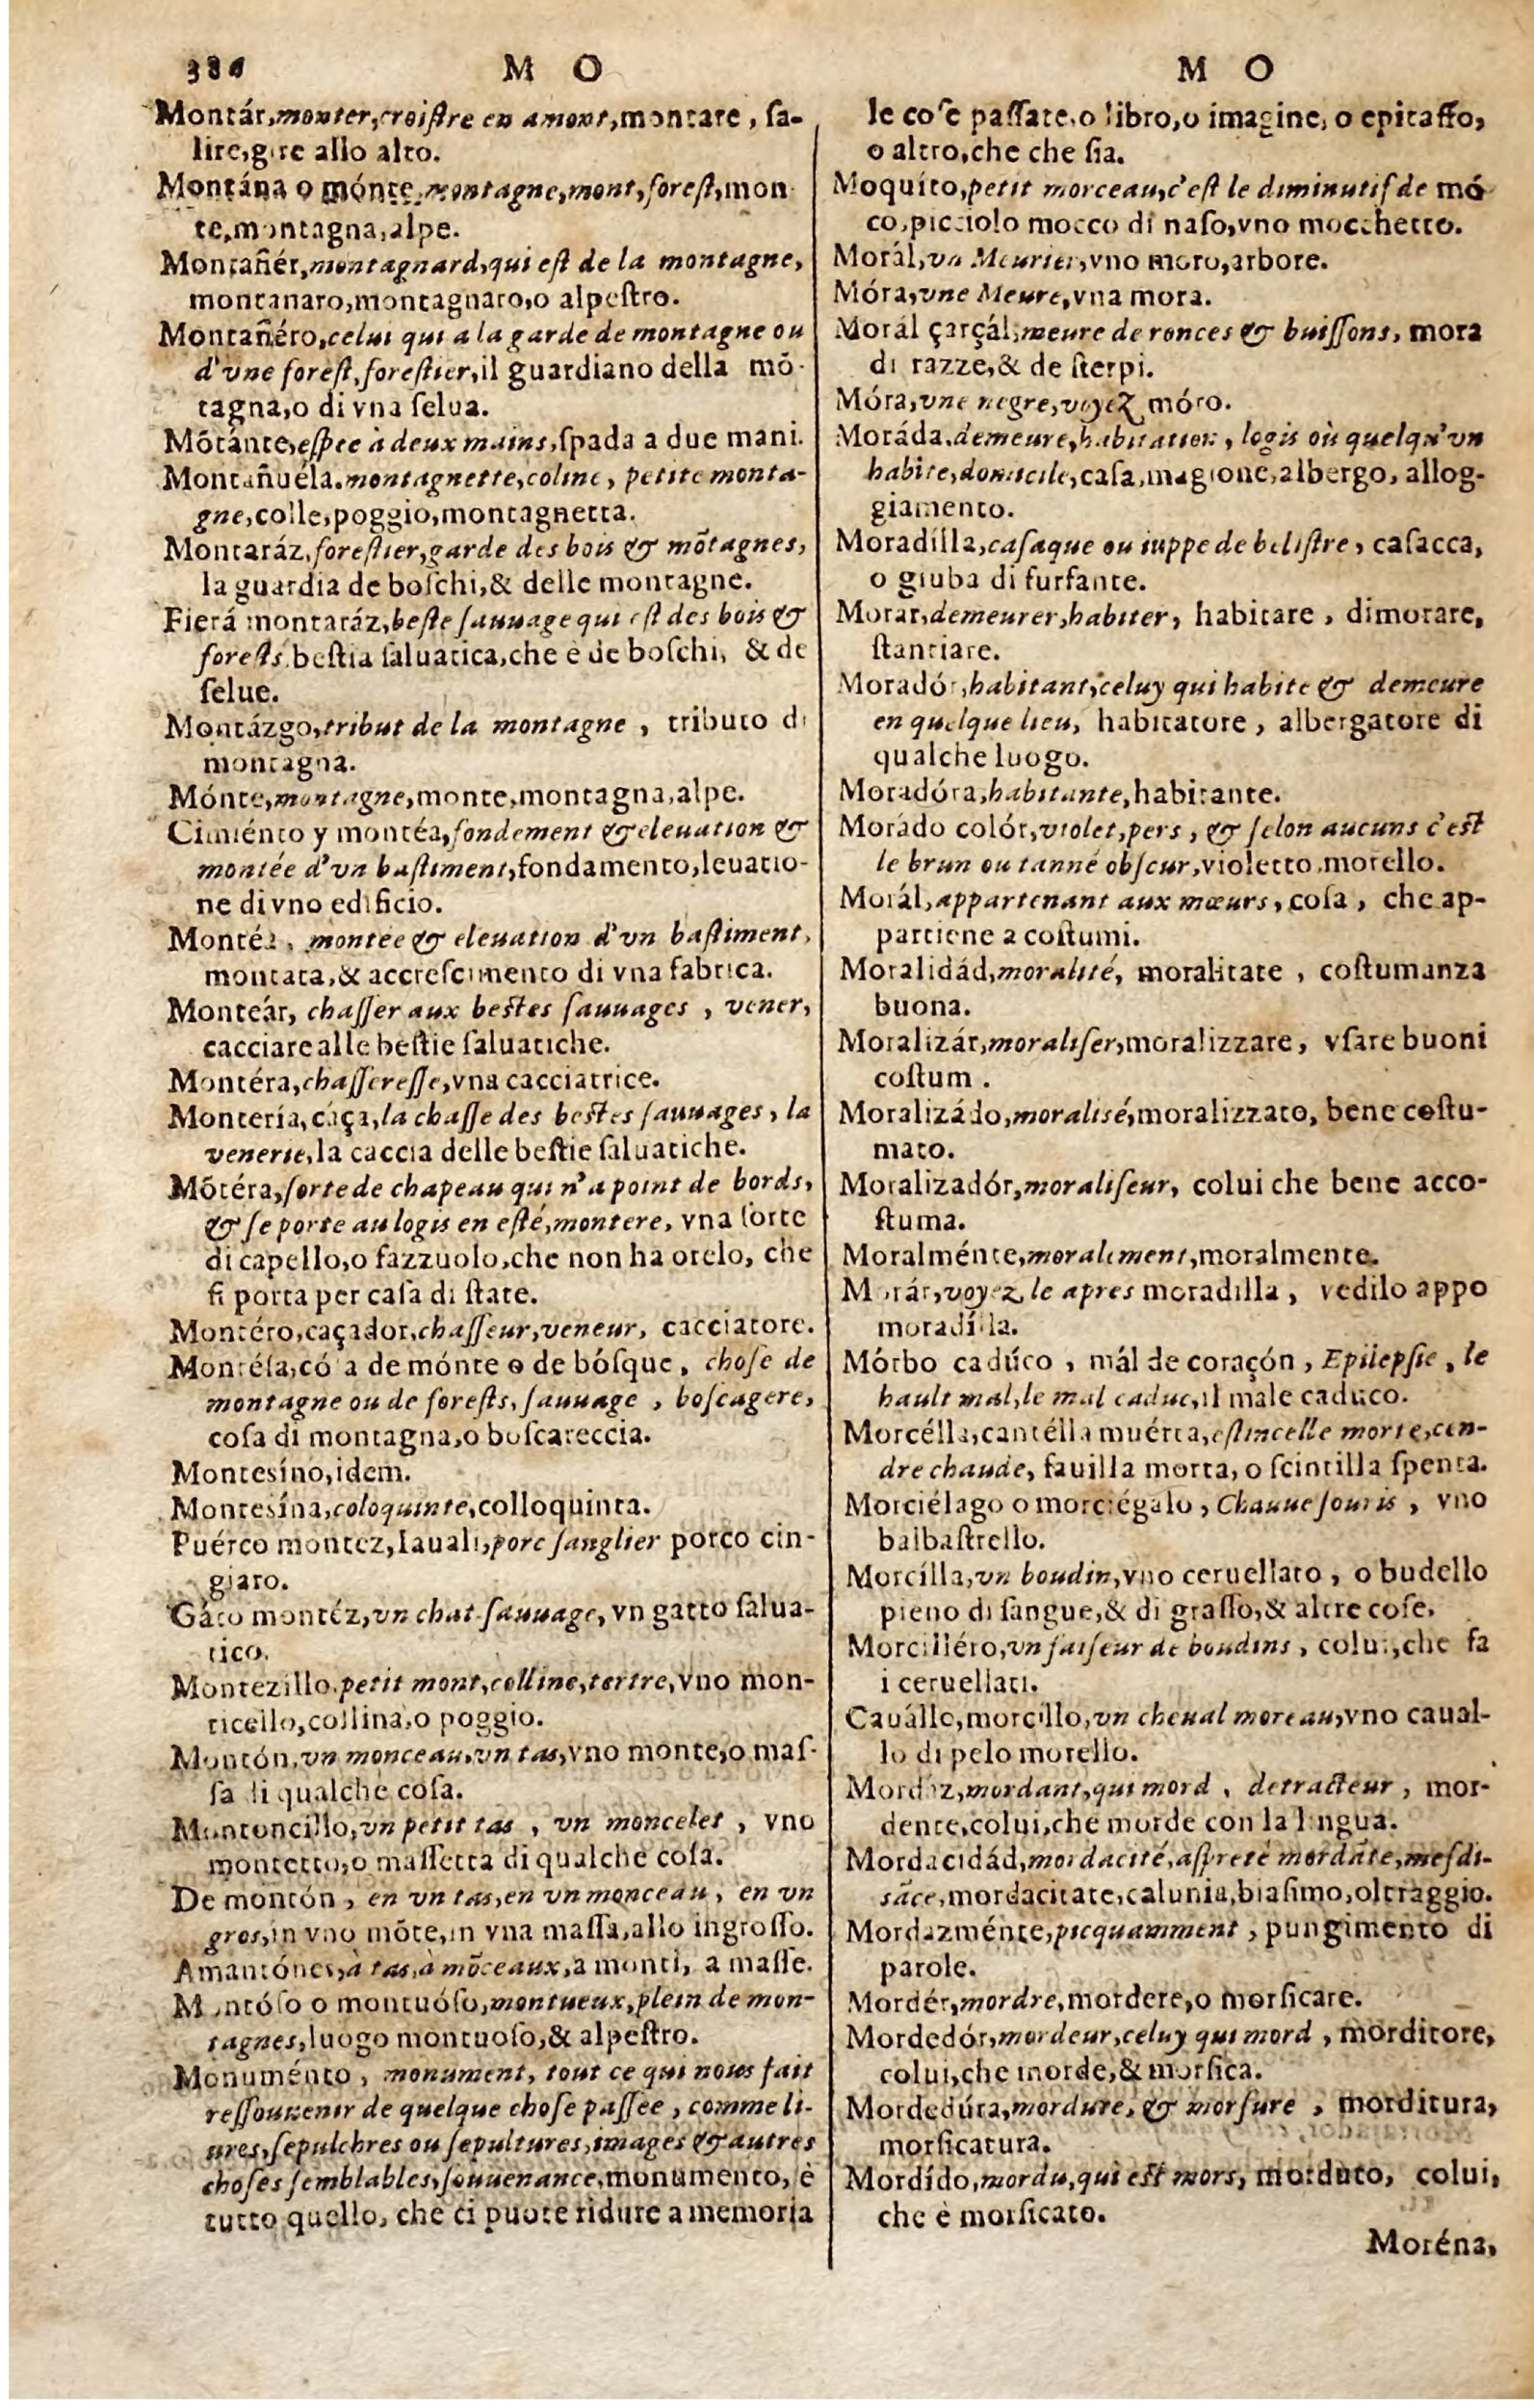 386 M O
M O
Montár, monter, croiſtre en amont, montare, ſa-
lire, gire allo alto.
Montána o mónte, montagne, mont, foreſt, mon
te, montagna, alpe.
Montañér, montagnard, qui eſt de la montagne,
montanaro, montagnaro, o alpeſtro.
Montañéro, celui qui a la garde de montagne ou
d'vne foreſt, foreſtier, il guardiano della mõ-
tagna, o di vna ſelua.
Mõtánte, eſpee à deux mains, ſpada a due mani.
Montañuéla. montagnette, coline, petite monta-
gne, colle, poggio, montagnetta.
Montaráz, foreſtier, garde des bois & mõtagnes,
la guardia de boſchi, & delle montagne.
Fierá montaráz, beſte ſauuage qui eſt des bois &
foreſts, beſtia ſaluatica, che è de boſchi, & de
ſelue.
Montázgo, tribut de la montagne, tributo di
montagna.
Mónte, montagne, monte, montagna, alpe.
Cimiénto y montéa, fondement & eleuation &
montée d'vn baſtiment, fondamento, leuatio-
ne di vno edificio.
Montéa, montee & eleuation d'vn baſtiment,
montata, & accreſcimento di vna fabrica.
Monteár, chaſſer aux beſtes ſauuages, vener,
cacciare alle beſtie ſaluatiche.
Montéra, chaſſereſſe, vna cacciatrice.
Montería, cáça, la chaſſe des beſtes ſauuages, la
venerie, la caccia delle beſtie ſaluatiche.
Mõtéra, ſorte de chapeau qui n'a point de bords,
& ſe porte au logis en eſté, montere, vna ſorte
di capello, o fazzuolo, che non ha orelo, che
ſi porta per caſa di ſtate.
Montéro, caçador, chaſſeur, veneur, cacciatore.
Montéſa, cóſa de mónte o de bóſque, choſe de
montagne ou de foreſts, ſauuage, boſcagere,
coſa di montagna, o boſcareccia.
Monteſíno, idem.
Monteſína, coloquinte, colloquinta.
Puérco montez, Iauali, porc ſanglier porco cin-
giaro.
Gáto montéz, vn chat ſauuage, vn gatto ſalua-
tico.
Montezillo. petit mont, colline, tertre, vno mon-
ticello, collina, o poggio.
Montón, vn monceau, vn tas, vno monte, o maſ-
ſa di qualche coſa.
Montoncillo, vn petit tas, vn moncelet, vno
montetto, o maſſetta di qualche coſa.
De montón, en vn tas, en vn monceau, en vn
gros, in vno mõte, in vna maſſa, allo ingroſſo.
Amantónes, à tas, à mõceaux, a monti, a maſſe.
Montóſo o montuóſo, montueux, plein de mon-
tagnes, luogo montuoſo, & alpeſtro.
Monuménto, monument, tout ce qui nous fait
reſſouuenir de quelque choſe paſſée, comme li-
ures, ſepulchres ou ſepultures, images & autres
choſes ſemblables, ſouuenance, monumento, è
tutto quello, che ci puote ridure a memoria
le coſe paſſate, o libro, o imagine, o epitaffo,
o altro, che che ſia.
Moquíto, petit morceau, c'eſt le diminutif de mó
co, picciolo mocco di naſo, vno mocchetto.
Morál, vn Meurier, vno moro, arbore.
Móra, vne Meure, vna mora.
Morál çarçál, meure de ronces & buiſſons, mora
di razze, & de ſterpi.
Móra, vne negre, voyez móro.
Moráda. demeure, habitation, logis où quelqu'vn
habite, domicile, caſa, magione, albergo, allog-
giamento.
Moradílla, caſaque ou iuppe de beliſtre, caſacca,
o giuba di furfante.
Morar, demeurer, habiter, habitare, dimorare,
ſtantiare.
Moradór, habitant, celuy qui habite & demeure
en quelque lieu, habitatore, albergatore di
qualche luogo.
Moradóra, habitante, habitante.
Morádo colór, violet, pers, & ſelon aucuns c'eſt
le brun ou tanné obſcur, violetto, morello.
Morál, appartenant aux mœurs, coſa, che ap-
partiene a coſtumi.
Moralidád, moralité, moralitate, coſtumanza
buona.
Moralizár, moraliſer, moralizzare, vſare buoni
coſtum.
Moralizádo, moraliſé, moralizzato, bene coſtu-
mato.
Moralizadór, moraliſeur, colui che bene acco-
ſtuma.
Moralménte, moralement, moralmente.
Morár, voyez le apres moradilla, vedilo appo
moradílla.
Mórbo cadúco, mál de coraçón, Epilepſie, le
hault mal, le mal caduc, il male caduco.
Morcélla, cantélla muérta, eſtincelle morte, cen-
dre chaude, fauilla morta, o ſcintilla ſpenta.
Morciélago o morciégalo, Chauue ſouris, vno
balbaſtrello.
Morcílla, vn boudin, vno ceruellato, o budello
pieno di ſangue, & di graſſo, & altre coſe.
Morcilléro, vn faiſeur de boudins, colui, che fa
i ceruellati.
Cauállo, morcíllo, vn cheual moreau, vno caual-
lo di pelo morello.
Mordáz, mordant, qui mord, detracteur, mor-
dente, colui, che morde con la lingua.
Mordacidád, mordacité, aſpreté mordãte, meſdi-
sãce, mordacitate, calunia, biaſimo, oltraggio.
Mordazménte, picquamment, pungimento di
parole.
Mordér, mordre, mordere, o morſicare.
Mordedór, mordeur, celuy qui mord, morditore,
colui, che morde, & morſica.
Mordedúra, mordure, & morſure, morditura,
morſicatura.
Mordído, mordu, qui eſt mors, morduto, colui,
che è morſicato.
Moréna,